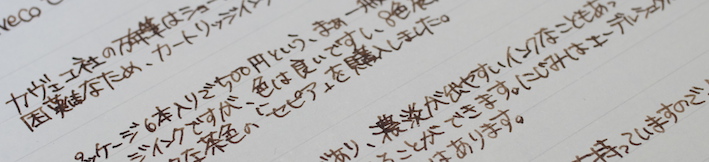 veco
カヴェコ社の万年筆はショー
困難なため、カートリッジイン
ッケージ6本入りで500円という、まぁ一
ジインクですが、色は良いですい。8色展
な茶色の「セピア」を購入しました。
があり、濃淡が出やすいインクなこともあっ
ることができます。にじみは
はあります。
持っていますので